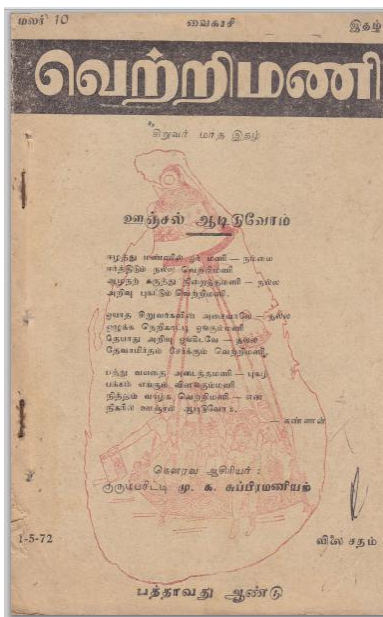 மலர் 10 வைகாசி இதழ்
வெற்றிமணி
சிறுவர் மாத இதழ்
ஊஞ்சல் ஆடிடுவோம்
ஈழத்து மண்ணில் ஓர் மணி — நல்லை
ஈர்த்திடும் நல்ல வெற்றிமணி
ஆழநற் கருத்து நிறைந்தமணி — நல்ல
அறிவு புகட்டும் வெற்றிமணி.
ஓயாத சிறுவர்களின் அசைவாலே — நல்ல
ஒழுக்க நெறிகாட்டி ஒங்கும்மணி
தேயாது அறிவு ஓங்கிடவே —
தேவாமிர்தம் சேர்க்கும் வெற்றிமணி.
பத்து வயதை அடைந்தமணி — புகழ்
பக்கம் எங்கும் விளங்கும்மணி
நித்தம் வாழ்க வெற்றிமணி — என
நிகரில ஊஞ்சல் ஆடிடுவோம்.
— கண்ணன்
கௌரவ ஆசிரியர் :
குரும்பசிட்டி மு. க. சுப்பிரமணியம்
1-5-72 விலை சதம்
பத்தாவது ஆண்டு